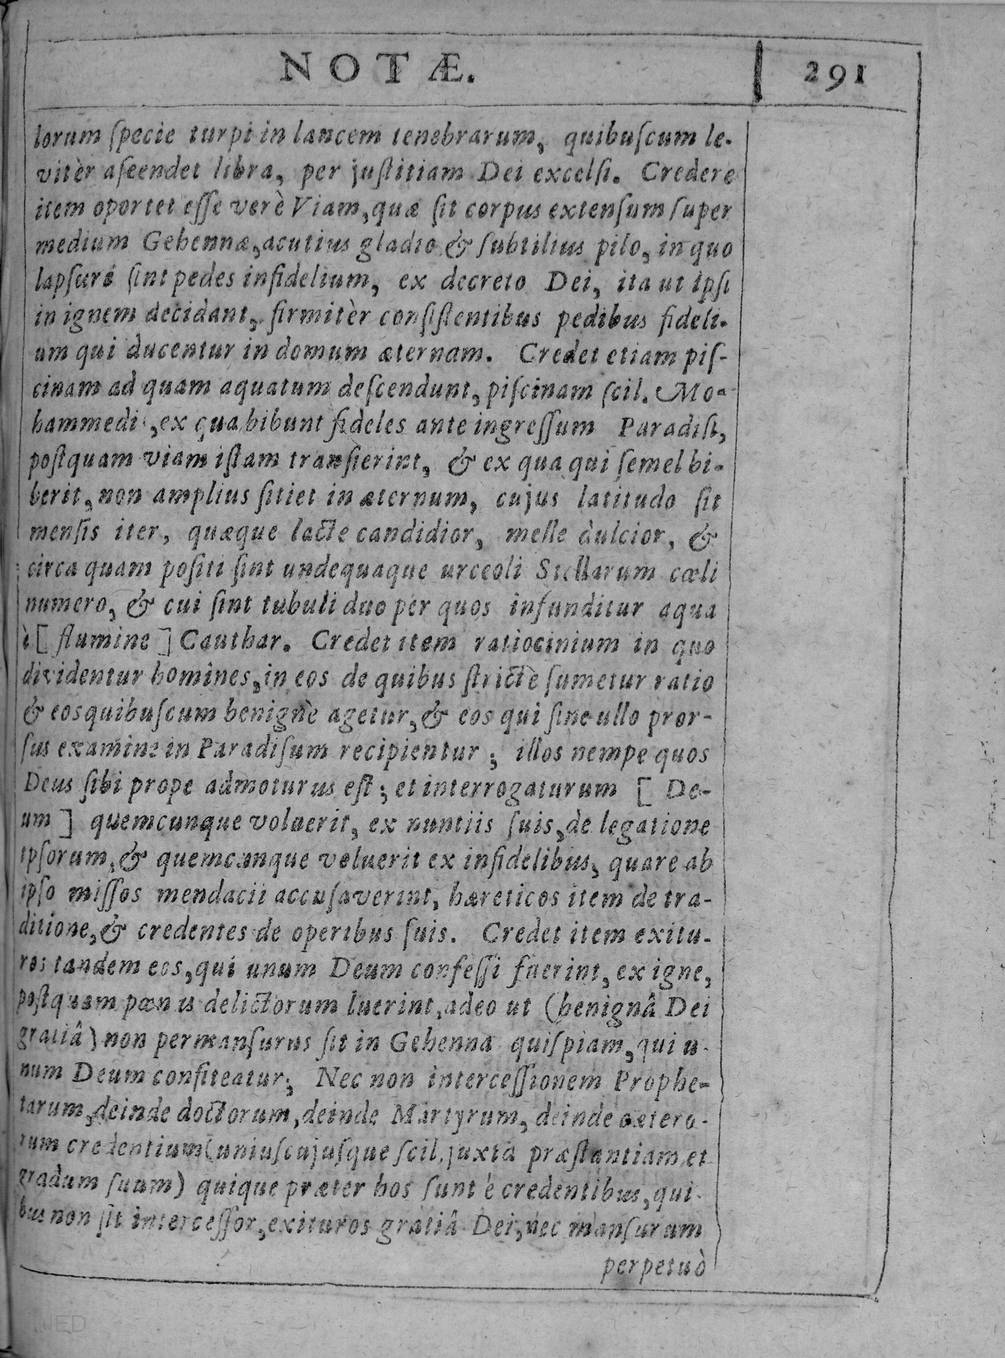 NOTÆ. 291
lorum ſpecie turpi in lancem tenebrarum, quibuſcum le-
vitèr aſcendet libra, per juſtitiam Dei excelſi. Credere
item oportet eſſe verè Viam, quæ ſit corpus extenſum ſuper
medium Gehennæ, acutius gladio & ſubtilius pilo, in quo
lapſuri ſint pedes infidelium, ex decreto Dei, ita ut ipſi
in ignem decidant, firmitèr conſiſtentibus pedibus fideli-
um qui ducentur in domum æternam. Credet etiam piſ-
cinam ad quam aquatum deſcendunt, piſcinam ſcil. Mo-
hammedi, ex qua bibunt fideles ante ingreſſum Paradiſi,
poſtquam viam iſtam tranſierint, & ex qua qui ſemel bi-
berit, non amplius ſitiet in æternum, cujus latitudo ſit
menſis iter, quæque lacte candidior, melle dulcior, &
circa quam poſiti ſint undequaque urceoli Stellarum cæli
numero, & cui ſint tubuli duo per quos infunditur aqua
è [ flumine ] Cauthar. Credet item ratiocinium in quo
dividentur homines, in eos de quibus ſtrictè ſumetur ratio
& eos quibuſcum benignè agetur, & eos qui ſine ullo pror-
ſus examine in Paradiſum recipientur ; illos nempe quos
Deus ſibi prope admoturus eſt ; et interrogaturum [ De-
um ] quemcunque voluerit, ex nuntiis ſuis, de legatione
ipſorum, & quemcunque voluerit ex infidelibus, quare ab
ipſo miſſos mendacii accuſaverint, hæreticos item de tra-
ditione, & credentes de operibus ſuis. Credet item exitu-
ros tandem eos, qui unum Deum confeſſi fuerint, ex igne,
poſtquam pœnas delictorum luerint, adeo ut (benignâ Dei
gratiâ) non permanſurus ſit in Gehenna quiſpiam, qui u-
num Deum confiteatur ; Nec non interceſſionem Prophe-
tarum, deinde doctorum, deinde Martyrum, deinde cætero-
rum credentium (uniuſcujuſque ſcil. juxta præſtantiam et
gradum ſuum) quique præter hos ſunt è credentibus, qui-
bus non ſit interceſſor, exituros gratiâ Dei, nec manſurum
perpetuò